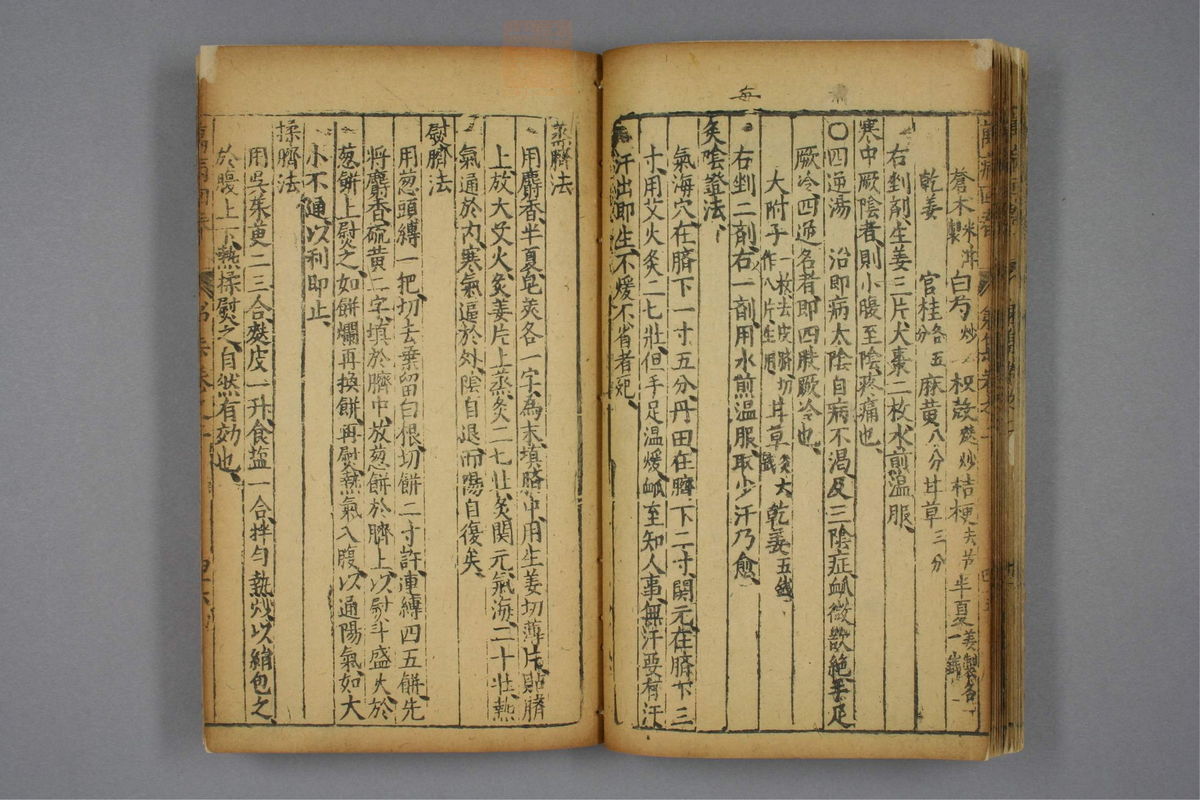 每
蒼朮米泔製白芍炒 枳殼麩炒桔梗去芦半夏姜製各一錢
乾姜 官桂各五分麻黃八分甘草三分
右剉一劑生姜三片大棗二枚水煎温服
寒中厥陰者則小腹至陰疼痛也
〇四逆湯 治即病太陰自病不渴及三陰症脉微欲絶手足
厥冷四逆名者即四肢厥冷也
大附子一枚去皮臍切作八片生用甘草炙六錢乾姜五錢
右剉二劑右一劑用水煎温服取少汗乃愈
灸陰證法
氣海穴在臍下一寸五分丹田在臍下二寸関元在臍下三
寸用艾火灸二七壯但手足温煖脉至知人事無汗要有汗
汗出即生不煖不省者死
蒸臍法
用麝香半夏皂莢各一字為末填臍中用生姜切薄片貼臍
上放大艾火灸姜片上蒸灸二七壯灸関元氣海二十壯熱
氣通於内寒氣逼於外陰自退而陽自復矣
熨臍法
用葱頭縛一把切去葉留白根切餅二寸許連縛四五餅先
將麝香硫黃二字填於臍中放葱餅於臍上以熨斗盛火於
葱餅上熨之如餅爛再換餅再熨熱氣入腹以通陽氣如大
小不通以利即止
揉臍法
用吳茱萸二三合麩皮一升食盐一合拌勻熱炒以絹包之
於腹上下熱揉熨之自然有効也